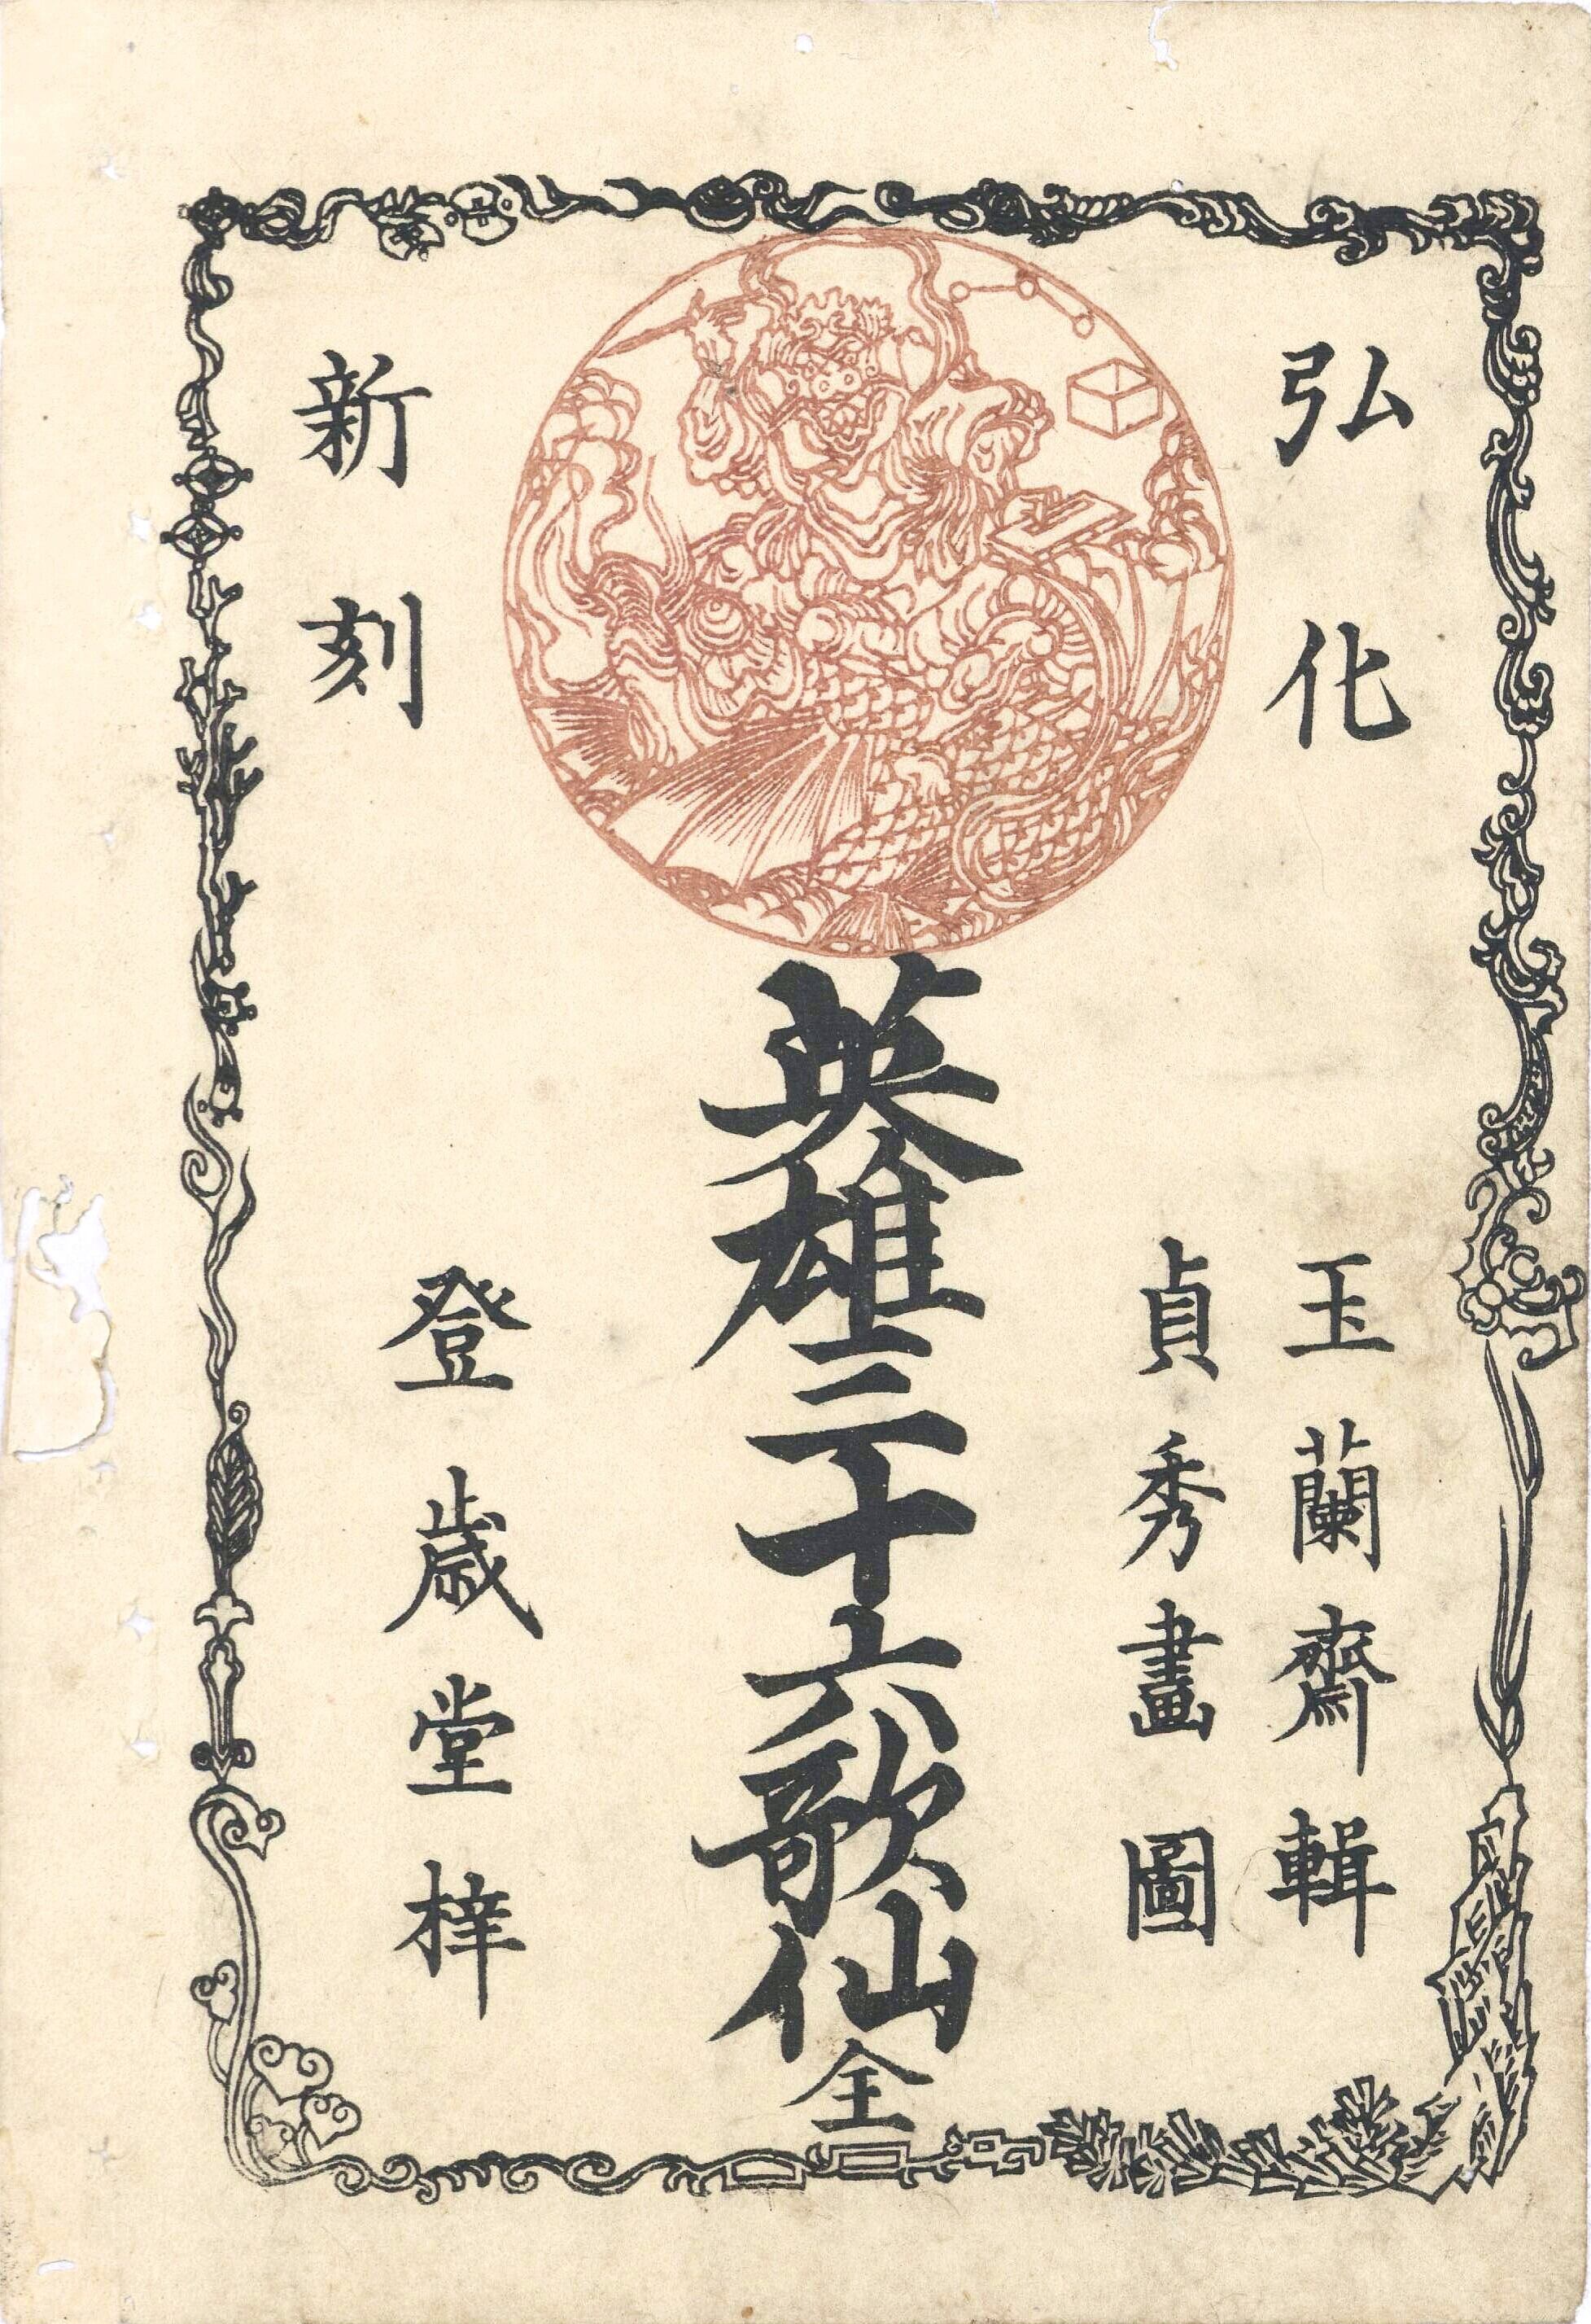 弘化
新刻
玉蘭齋輯
貞秀畫圖
英雄三十六歌仙全
登歳堂梓